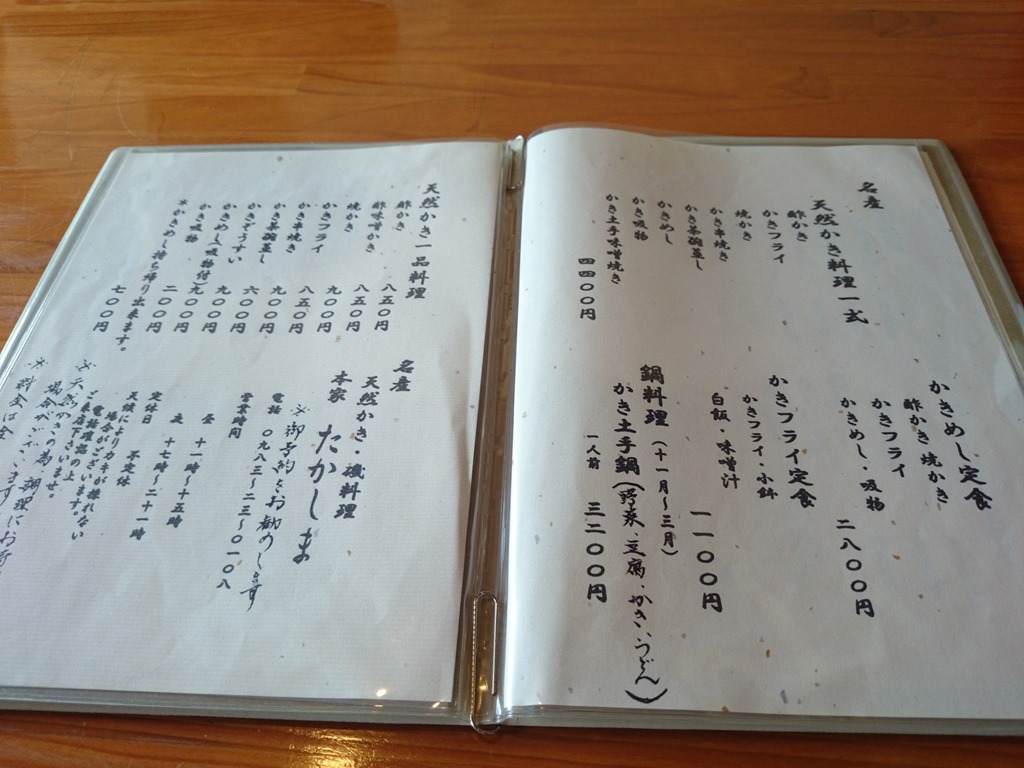 名産
天然かき料理一式
酢かき
かきフライ
焼かき
かき串焼き
かき茶碗蒸し
かきめし
かき吸物
かき土手味噌焼き
四四〇〇円
かきめし定食
酢かき焼かき
かきフライ
かきめし・吸物
二八〇〇円
かきフライ定食
かきフライ・小鉢
白飯・味噌汁
一一〇〇円
鍋料理（十一月～三月）
かき土手鍋（野菜、豆腐・かき・うどん）
一人前 三二〇〇円
天然かき一品料理
酢かき 八五〇円
酢味噌かき 八五〇円
焼かき 九〇〇円
かきフライ 八五〇円
かき串焼き 九〇〇円
かき茶碗蒸し 六〇〇円
かきぞうすい 九〇〇円
かきめし（吸物付） 九〇〇円
かき吸物 二〇〇円
かきめし持ち帰り出来ます。 七〇〇円
名産
天然かき・磯料理
本家 たかしま
※御予約をお勧めします
電話 〇九八三～二三～〇一〇八
営業時間
昼 十一時～十五時
夜 十七時～二十一時
定休日 不定休
天候によりカキが採れない
場合がございます。
電話確認の上
ご来店下さいませ。
※天然かきの為
場合がございます
※料金は全
調理にお